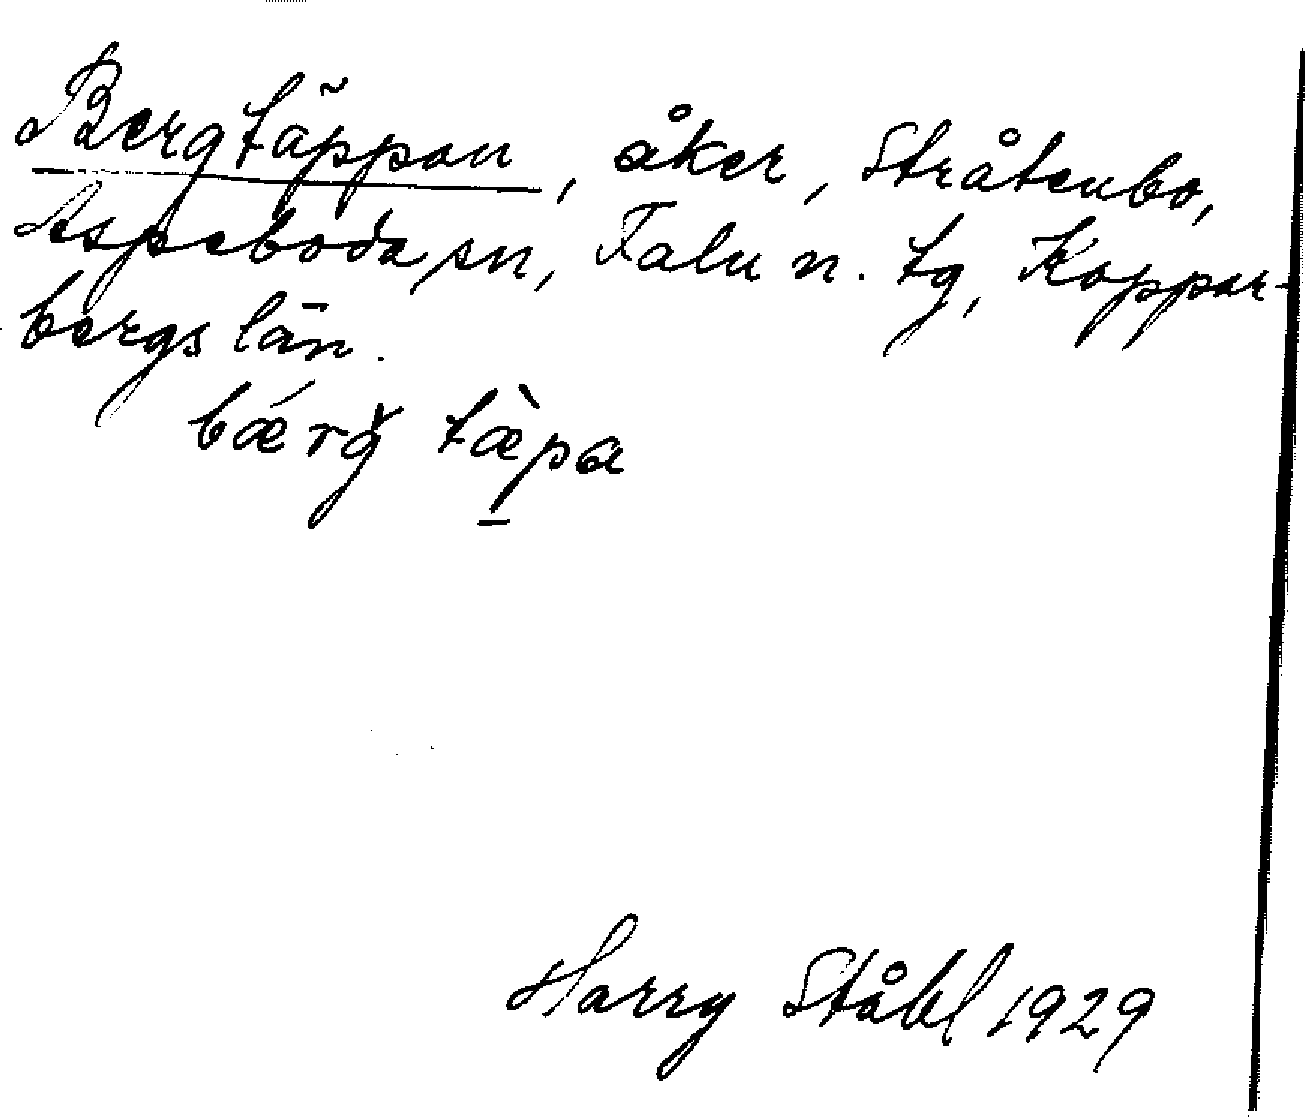 Bergtäppan, åker, Stråtenbo,
Aspeboda sn, Falu n. tg, Koppar-
bergs län.
bǽrǧ tæ̀p̠a
Harry Ståhl 1929